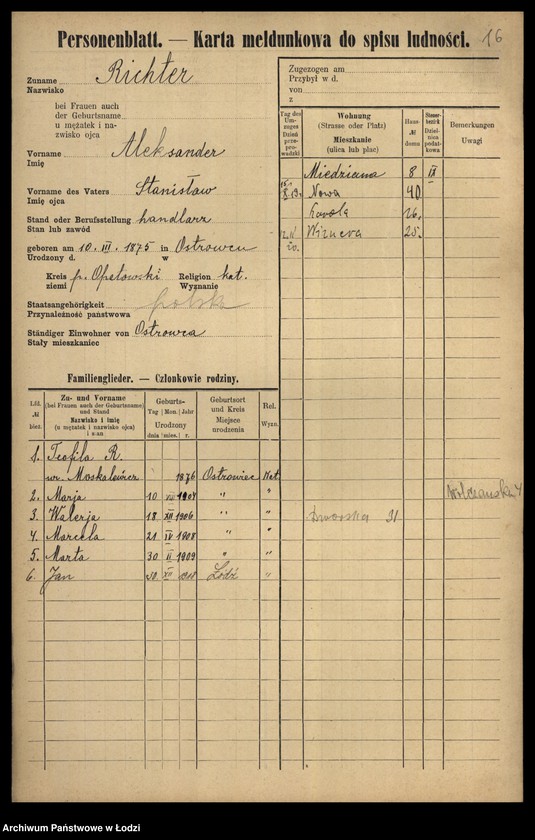 Personenblatt. — Karta meldunkowa do spisu ludności. 16
Zuname Richter
Nazwisko
bei Frauen auch
der Geburtsname
u mężatek i na-
zwisko ojca
Vorname Aleksander
Imię
Vorname des Vaters Stanisław
Imię ojca
Stand oder Berufsstellung handlarz
Stan lub zawód
geboren am 10. III. 1875 in Ostrowcu
Urodzony d. w
Kreis p. Opatowski Religion kat.
ziemi Wyznanie
Staatsangehörigkeit polska
Przynależność państwowa
Ständiger Einwohner von Ostrowca
Stały mieszkaniec
Zugezogen am
Przybył w d.
von
z
Tag des Um-zuges Dzień prze-pro-wadzki
Wohnung
(Strasse oder Platz)
Mieszkanie
(ulica lub plac)
Haus-
№
domu
Steuer-bezirk Dziel-nica podat-kowa
Bemerkungen
Uwagi
Miedziana 8 IX
Nowa 40
26.
25.
Wólczańska 4
31
Familienglieder. — Członkowie rodziny.
Lfd.
№
bież.
Zu- und Vorname
(bei Frauen auch der Geburtsname)
und Stand
Nazwisko i imię
(u mężatek i nazwisko ojca)
i stan
Geburts-
Tag Mon. Jahr
Urodzony
dnia mies. r.
Geburtsort
und Kreis
Miejsce
urodzenia
Rel.
Wyzn.
1. Teofila R.
ur. Moskalewicz 1876 Ostrowiec kat.
2. Marja 10 VII 1904 " "
3. Walerja 18 XII 1906 " "
4. Marcela 21 IV 1908 " "
5. Marta 30 II 1909 " "
6. Jan XII Łódź "
Archiwum Państwowe w Łodzi